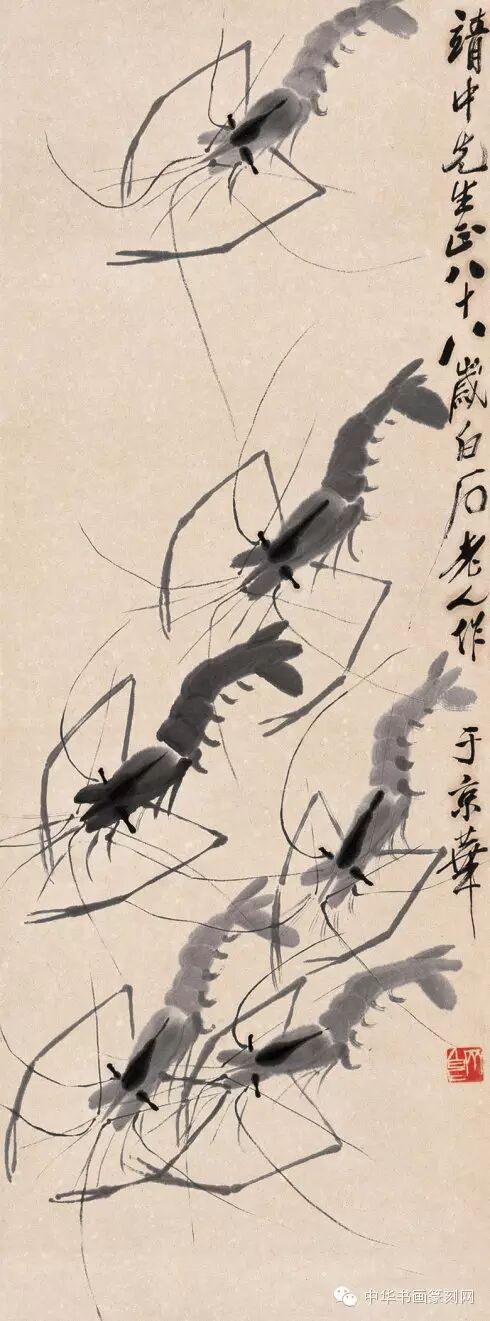 靖中先生正八十八歲白石老人作
于京華
中华书画篆刻网